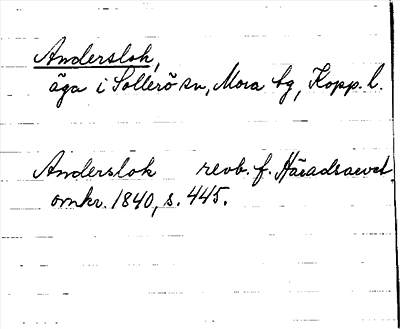 Anderslok,
äga i Sollerö sn, Mora tg, Kopp. l.
Anderslok renb. f. Häradsarvet
omkr. 1840, s. 445.